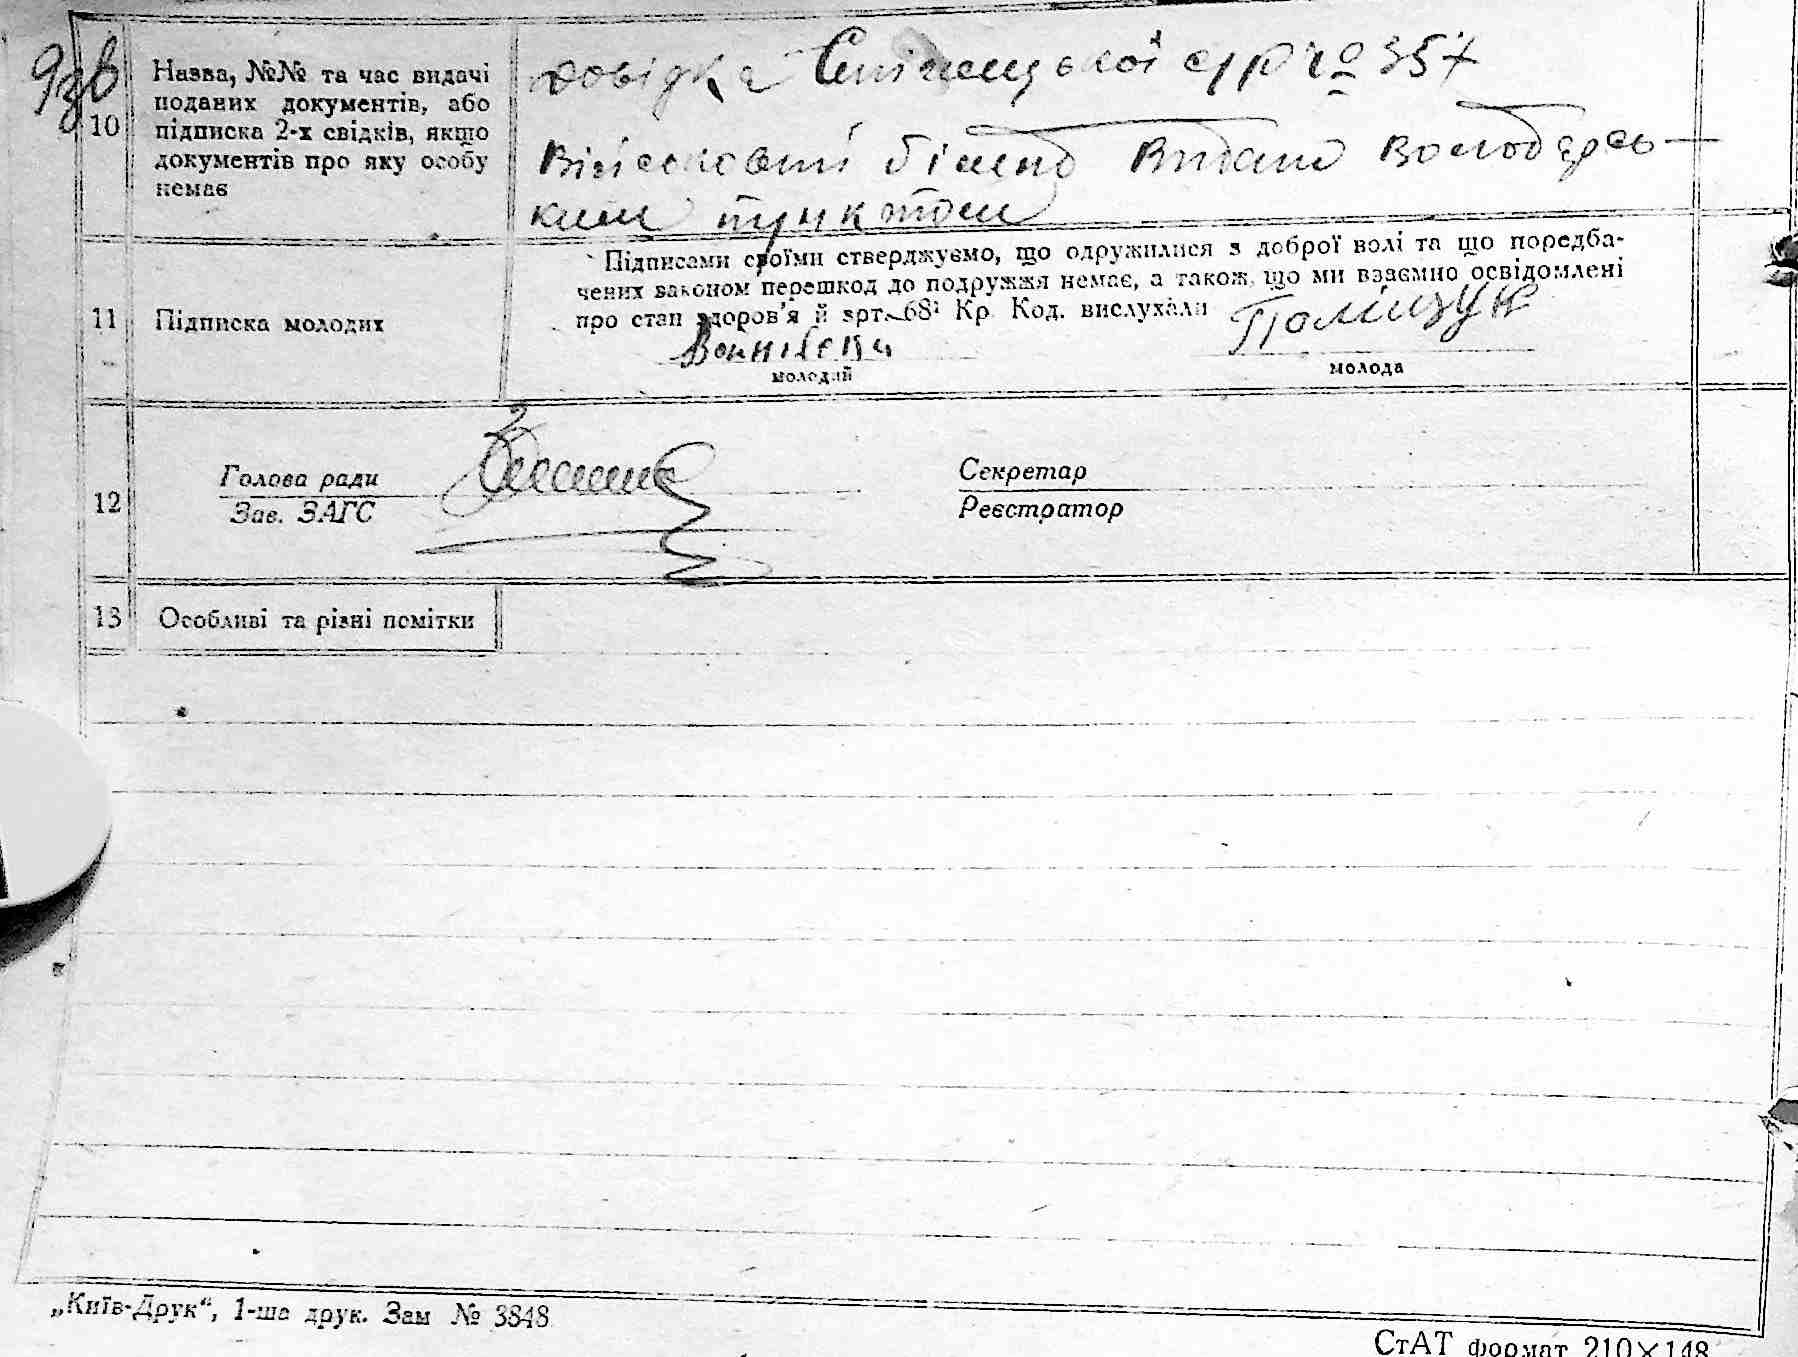 10
Назва, №№ та час видачі
поданих документів, або
підписка 2-х свідків, якщо
документів про яку особу
немає
довідка с/р № 357
Військовий білет Видано Володарсь-
ким пунктом
11
Підписка молодих
Підписами своїми стверджуємо, що одружилися з доброї волі та що передба-
чених законом перешкод до подружжя немає, а також, що ми взаємно освідомлені
про стан здоров'я й арт. 68¹ Кр. Код. вислухали
Поліщук
молодий
молода
12
Голова ради
Зав. ЗАГС
Секретар
Реєстратор
13
Особливі та різні помітки
„Київ-Друк“, 1-ша друк. Зам № 3848
СтАТ формат 210×148